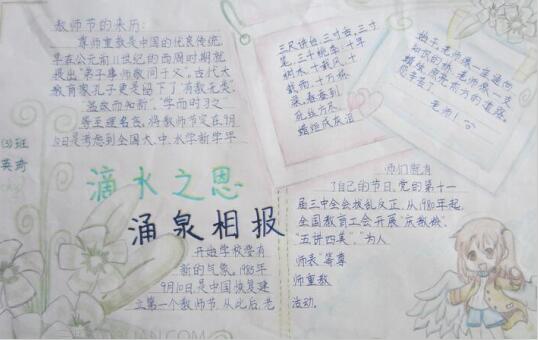 教师节的来历:
尊师重教是中国的优良传统,
早在公元前11世纪的西周时期就
提出"弟子事师敬同于父"。古代大
教育家孔子更是留下了"有教无类",
"温故而知新","学而时习之"
等至理名言。将教师节定在9月
10日是考虑到全国大、中、小学新学年
三尺讲台,三寸舌,三寸
笔,三千桃李;十年
树木,十载风,十
载雨,十万栋
梁。春蚕到
死丝方尽
蜡炬成灰泪
老师!
(3)班
英
滴水之恩
涌泉相报
开始学校要有
新的气象。1985年
9月10日是中国恢复建
立第一个教师节,从此后,老
师们就有
了自己的节日。党的第十一
届三中全会拨乱反正,从1980年起,
全国教育工会开展"庆教龄"
"五讲四美""为人
师表"等尊
师重教
活动。